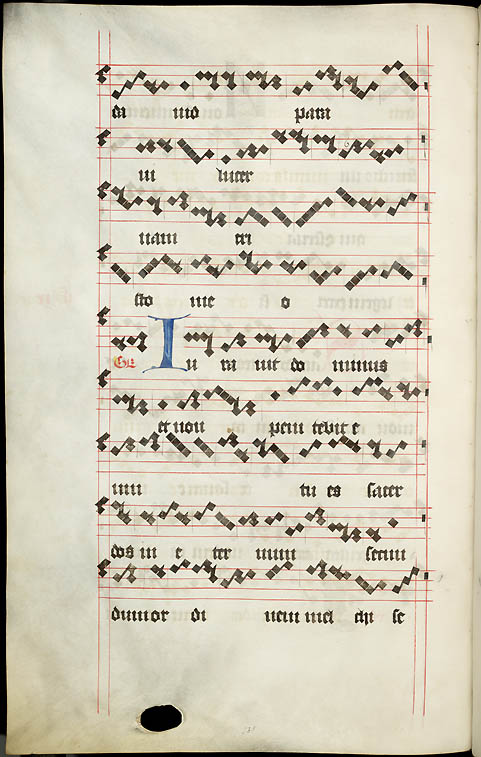 da uid para
ui lucer
nam cri
sto me o
Iu ra uit do minus
et non peni tebit e
um tu es sacer
dos in e ter num secun
dum or di nem mel chi se